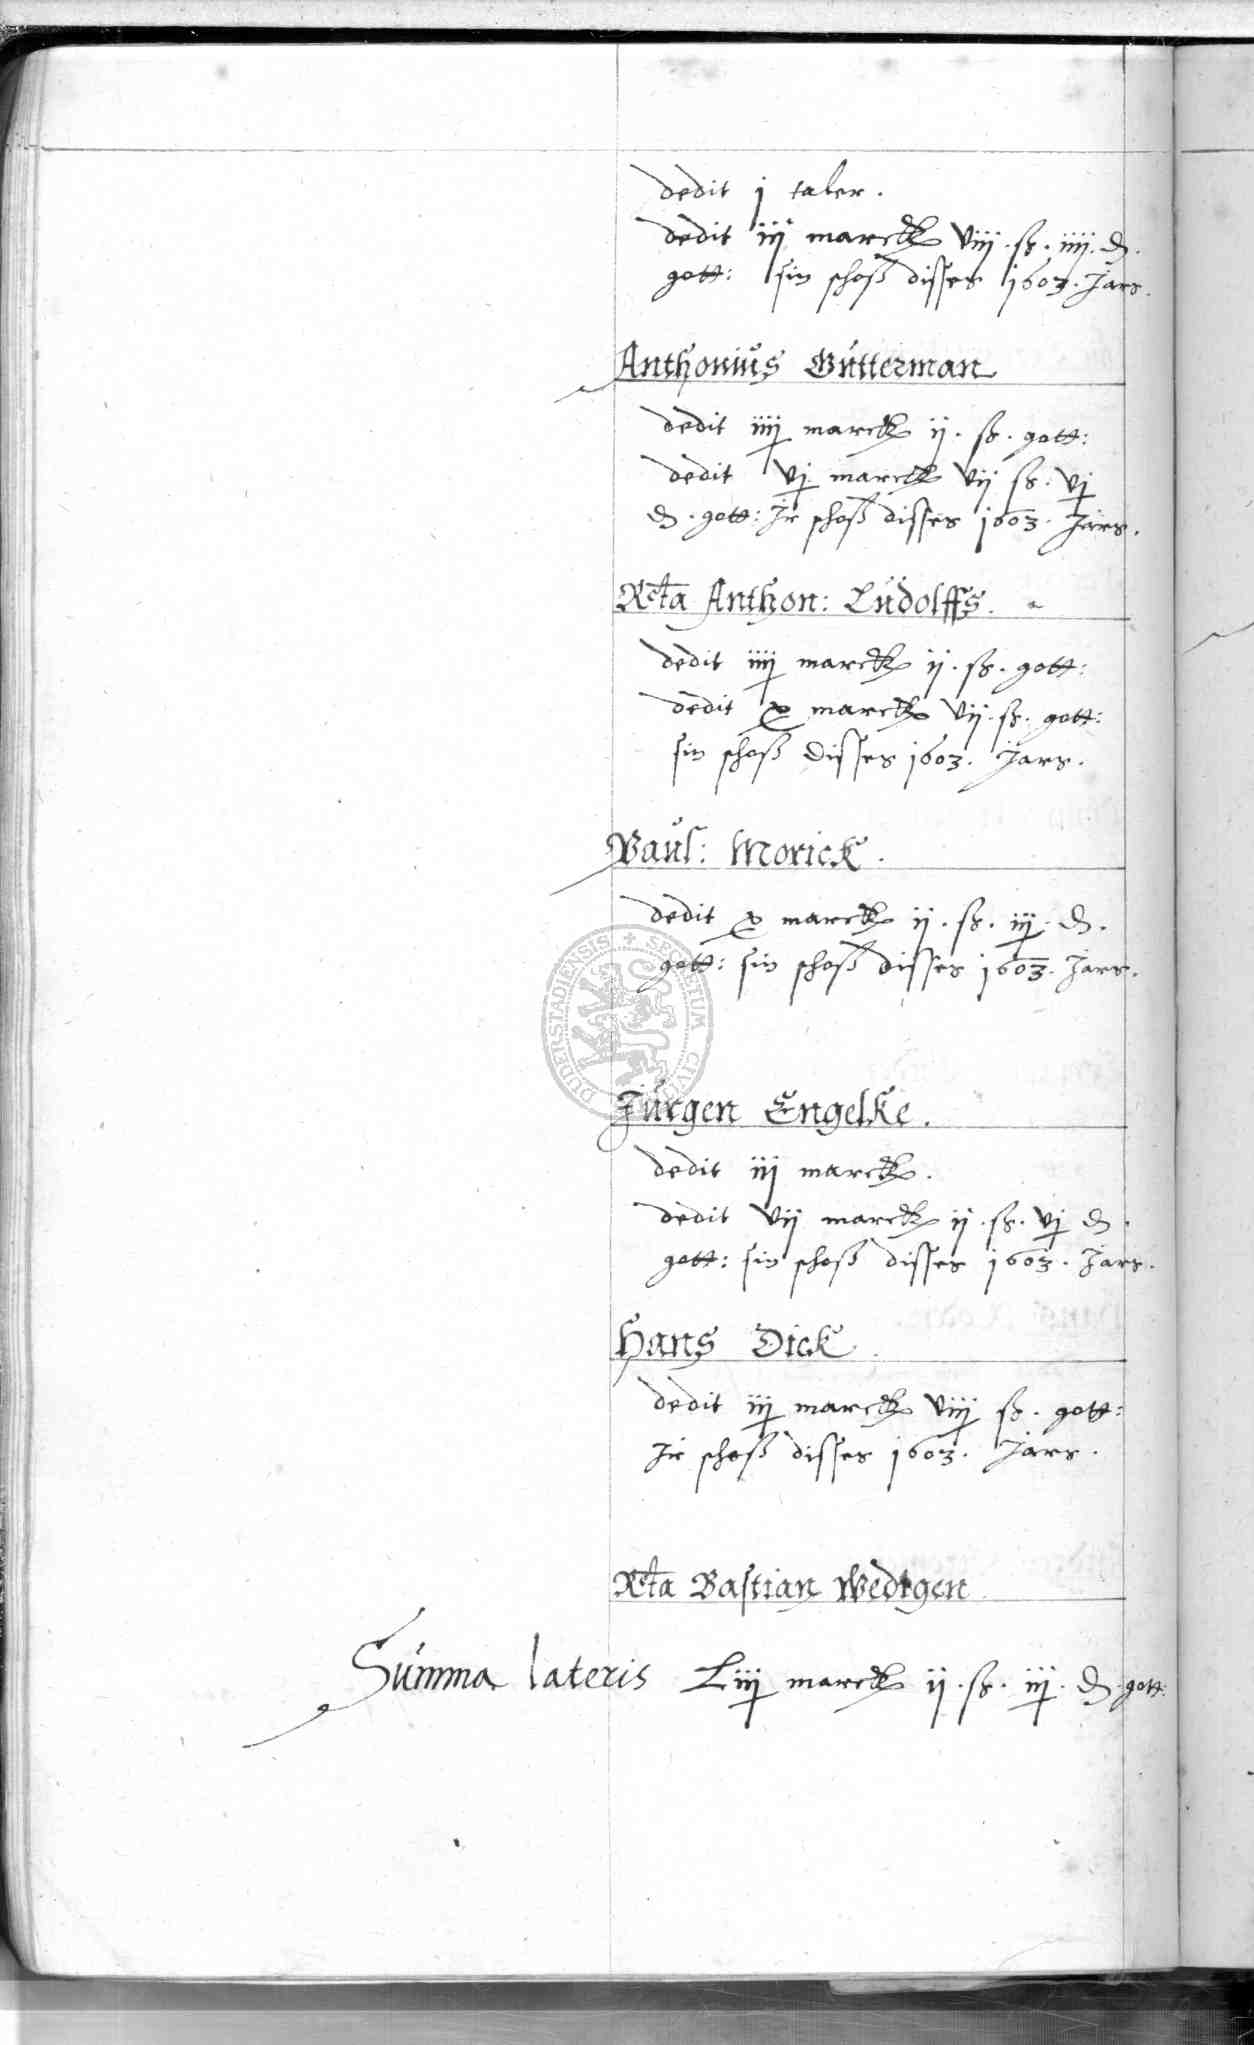 dedit j taler.
dedit iij marck viij. ß. iiij. d.
gott: sin schoß disses 1603. Jars.
Anthonius Gütterman
dedit iiij marck ij. ß. gott:
dedit vj marck vij ß. vj
d. gott: Jr schoß disses 1603. Jars.
Rcta Anthon: Lüdolffs.
dedit iiij marck ij. ß. gott:
dedit x marck vij. ß. gott:
sin schoß disses 1603. Jars.
Paul: Morick.
dedit x marck ij. ß. iij. d.
gott: sin schoß disses 1603. Jars.
DUDERSTADIENSIS + SECRETUM
Jürgen Engelke.
dedit iij marck.
dedit vij marck ij. ß. vj d.
gott: sin schoß disses 1603. Jars.
Hans Dick.
dedit iij marck viij ß. gott:
Jr schoß disses 1603. Jars.
Rcta Bastian Wedtgen
Summa lateris Liij marck ij. ß. iij. d. gott: